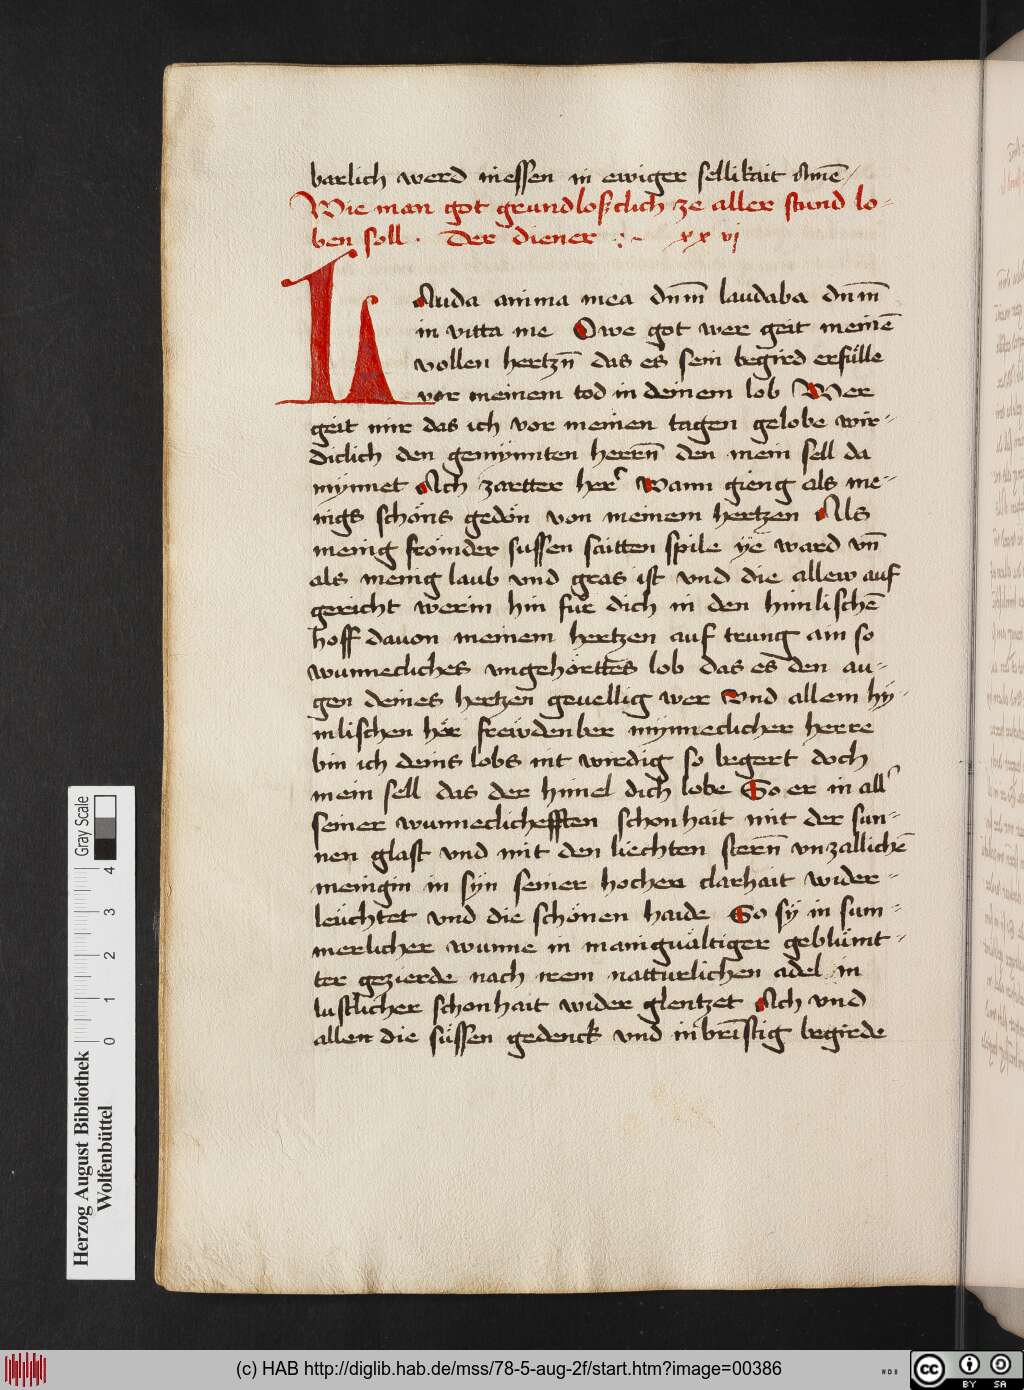 barlich werd niessen in ewiger sellikait Amē
Wie man got grundloßclich ze aller stund lo-
ben soll · Der diener :~ xxvj
LAuda anima mea dnm̄ laudabo dnm̄
in vitta me Owe got wer geit meinē
vollen hertzn̄ das es sein begird erfülle
vor meinem tod in deinem lob Wer
geit mir das ich vor meinen tagen gelobe wir-
diclich den gemÿnnten herrn̄ den mein sell da
mÿnnet Ach zartter her Wann gieng als me-
nigs schöns gedön von meinem hertzen Als
menig frömder sussen saitten spile ÿe ward vn̄
als menig laub vnd gras ist vnd die allew auf
gericht werin hin für dich in den himlischē
hoff dauon meinem hertzen auf trung am so
wunnecliches vngehörttes lob das es den au-
gen deines hertzen geuellig wer Vnd allem hÿ-
mlischen hör frewdenber mÿnneclicher herre
bin ich deins lobs nit wirdig so begert doch
mein sell das der himel dich lobe So er in all
seiner wunneclichefften schonhait mit der sun-
nen glast vnd mit den liechten stern̄ vnzallichē
meinigin in sÿn seiner hochen clarhait wider-
leüchtet vnd die schönen haide So sÿ in sum-
merlicher wunne in maniguältiger geblümt-
ter gezierde nach irem natturlichen adel in
lustlicher schonhait wider glentzet Ach vnd
allen die süssen gedenck vnd inbrīstig begirde
Gray Scale
4
3
2
1
0
Herzog August Bibliothek
Wolfenbüttel
(c) HAB http://diglib.hab.de/mss/78-5-aug-2f/start.htm?image=00386
WDB
cc
BY SA